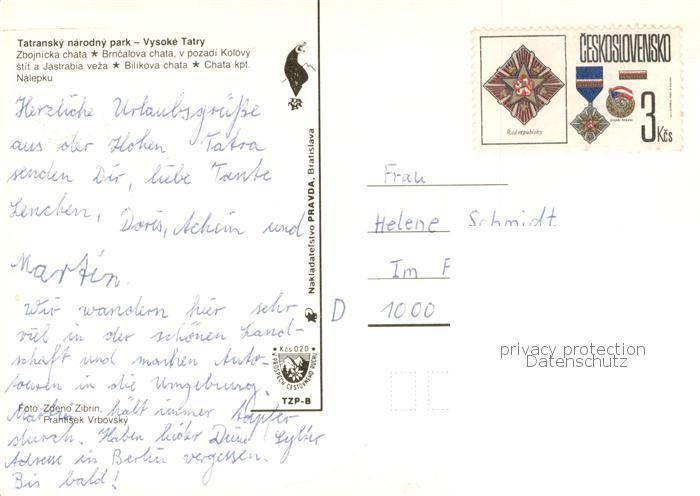 Tatranský národný park – Vysoké Tatry
Zbojnícka chata ★ Brnčalova chata, v pozadí Kolový
štít a Jastrabia veža ★ Bilíkova chata ★ Chata kpt.
Nálepku
Herzliche Urlaubsgrüße
aus der Hohen Tatra
senden Dir, liebe Tante
Lenchen, Doris, Achim und
Martin.
Wir wandern hier sehr
viel in der schönen Land-
schaft und machen Auto-
touren in die Umgebung.
Martin hält immer tapfer
durch. Haben leider Deine Sylter
Adresse in Berlin vergessen.
Bis bald!
Foto Zdeno Zibrín,
František Vrbovský
Nakladateľstvo PRAVDA, Bratislava
Kčs 020
V PROSPECH CESTOVNÉHO RUCHU
TZP-B
ČESKOSLOVENSKO
Řád republiky
3 Kčs
Frau
Helene Schmidt
Im
D 1000
privacy protection
Datenschutz